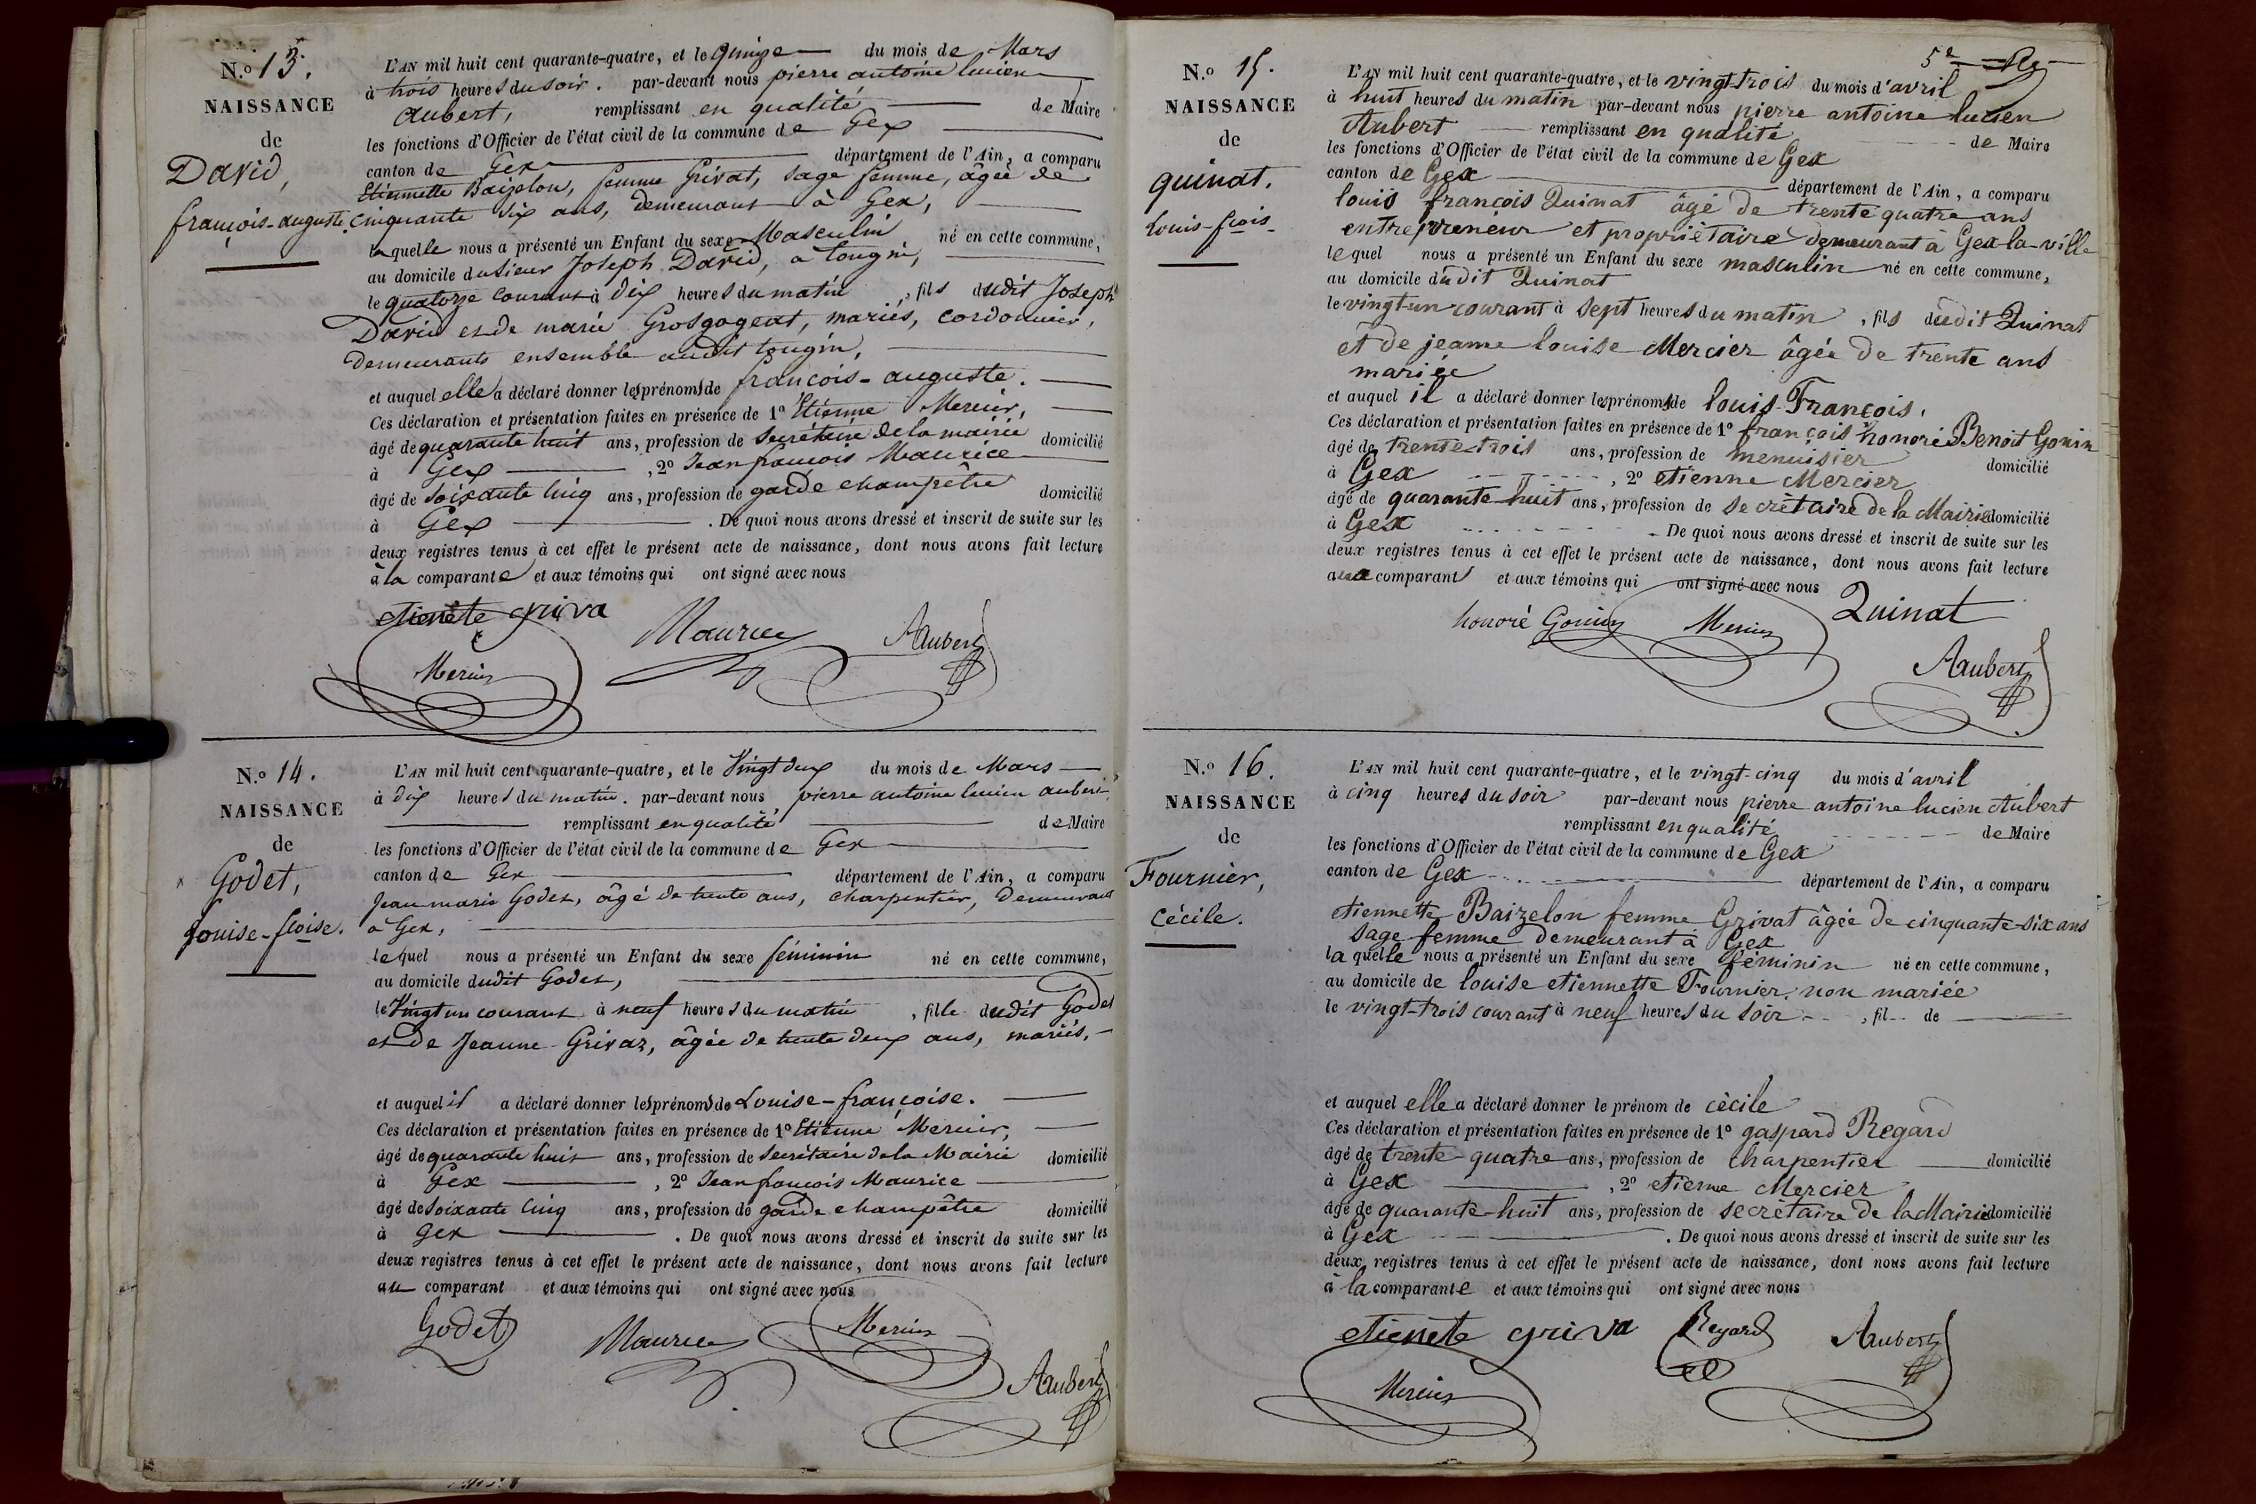 N.º 13.
NAISSANCE
de
David,
françois-auguste.
L'AN mil huit cent quarante-quatre, et le quinze du mois de Mars
à trois heures du soir. par-devant nous pierre antoine lucien
Aubert, remplissant en qualité de Maire
les fonctions d'Officier de l'état civil de la commune de Gex
canton de Gex département de l'Ain, a comparu
Etiennette Baizelon, femme Grivat, sage femme, âgée de
cinquante six ans, demeurant à Gex,
laquelle nous a présenté un Enfant du sexe Masculin né en cette commune,
au domicile du sieur Joseph David, à tougin,
le quatorze courant à dix heures du matin, fils dudit Joseph
David et de marie Grosgogeat, mariés, cordonnier,
demeurants ensemble audit tougin,
et auquel elle a déclaré donner les prénoms de françois-auguste.
Ces déclaration et présentation faites en présence de 1º Etienne Mercier,
âgé de quarante huit ans, profession de Secrétaire de la mairie domicilié
à Gex, 2º Jean françois Maurice
âgé de soixante cinq ans, profession de garde champêtre domicilié
à Gex. De quoi nous avons dressé et inscrit de suite sur les
deux registres tenus à cet effet le présent acte de naissance, dont nous avons fait lecture
à la comparante et aux témoins qui ont signé avec nous
etienete griva Maurice Aubert
Mercier
N.º 14.
NAISSANCE
de
Godet,
Louise-fçoise.
L'AN mil huit cent quarante-quatre, et le Vingt deux du mois de Mars
à dix heures du matin. par-devant nous pierre antoine lucien aubert,
remplissant en qualité de Maire
les fonctions d'Officier de l'état civil de la commune de Gex
canton de Gex département de l'Ain, a comparu
Jean marie Godet, âgé de trente ans, charpentier, demeurant
à Gex,
lequel nous a présenté un Enfant du sexe féminin né en cette commune,
au domicile dudit Godet,
le Vingt un courant à neuf heures du matin, fille dudit Godet
et de Jeanne Grivaz, âgée de trente deux ans, mariés,
et auquel il a déclaré donner les prénoms de Louise-françoise.
Ces déclaration et présentation faites en présence de 1º Etienne Mercier,
âgé de quarante huit ans, profession de Secrétaire de la Mairie domicilié
à Gex, 2º Jean françois Maurice
âgé de soixante cinq ans, profession de garde champêtre domicilié
à Gex. De quoi nous avons dressé et inscrit de suite sur les
deux registres tenus à cet effet le présent acte de naissance, dont nous avons fait lecture
au comparant et aux témoins qui ont signé avec nous
Godet Maurice Mercier
Aubert
5e
N.º 15.
NAISSANCE
de
quinat.
louis-fcois.
L'AN mil huit cent quarante-quatre, et le vingt-trois du mois d'avril
à huit heures du matin par-devant nous pierre antoine lucien
Aubert remplissant en qualité de Maire
les fonctions d'Officier de l'état civil de la commune de Gex
canton de Gex département de l'Ain, a comparu
louis françois Quinat âgé de trente quatre ans
entrepreneur et propriétaire demeurant à Gex-la-ville
lequel nous a présenté un Enfant du sexe masculin né en cette commune,
au domicile dudit Quinat
le vingt-un courant à sept heures du matin, fils dudit Quinat
et de jeanne louise Mercier âgée de trente ans
mariée
et auquel il a déclaré donner les prénoms de louis-François.
Ces déclaration et présentation faites en présence de 1º françois honoré Benoit Gonin
âgé de trente-trois ans, profession de menuisier domicilié
à Gex, 2º etienne Mercier
âgé de quarante-huit ans, profession de secrétaire de la Mairie domicilié
à Gex. De quoi nous avons dressé et inscrit de suite sur les
deux registres tenus à cet effet le présent acte de naissance, dont nous avons fait lecture
au comparant et aux témoins qui ont signé avec nous
honoré Gonin Mercier Quinat
Aubert
N.º 16.
NAISSANCE
de
Fournier,
cécile.
L'AN mil huit cent quarante-quatre, et le vingt-cinq du mois d'avril
à cinq heures du soir par-devant nous pierre antoine lucien Aubert
remplissant en qualité de Maire
les fonctions d'Officier de l'état civil de la commune de Gex
canton de Gex département de l'Ain, a comparu
etiennette Baizelon femme Grivat âgée de cinquante-six ans
sage femme demeurant à Gex
laquelle nous a présenté un Enfant du sexe féminin né en cette commune,
au domicile de louise etiennette Fournier. non mariée
le vingt-trois courant à neuf heures du soir, fil de
et auquel elle a déclaré donner le prénom de cècile
Ces déclaration et présentation faites en présence de 1º gaspard Regard
âgé de trente-quatre ans, profession de charpentier domicilié
à Gex, 2º etienne Mercier
âgé de quarante-huit ans, profession de secrétaire de la Mairie domicilié
à Gex. De quoi nous avons dressé et inscrit de suite sur les
deux registres tenus à cet effet le présent acte de naissance, dont nous avons fait lecture
à la comparante et aux témoins qui ont signé avec nous
etienete griva Regard Aubert
Mercier